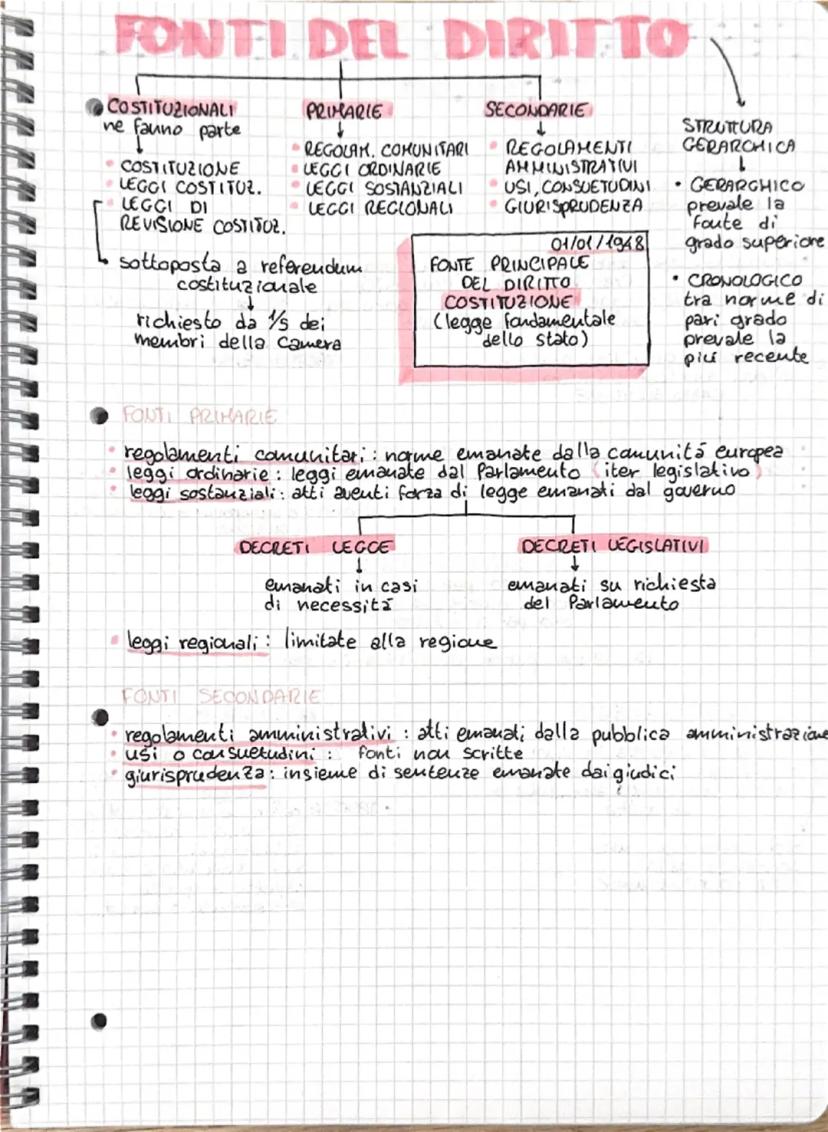 FONTI DEL DIRITTO
COSTITUZIONALI
ne fanno parte
• COSTITUZIONE
• LEGGI COSTITUZ.
• LEGGI DI
REVISIONE COSTITUZ.
sottoposta a referendum
costituzionale
richiesto da 1/5 dei
membri della camera
PRIMARIE
• REGOLAM. COMUNITARI
• LEGGI ORDINARIE
• LEGGI SOSTANZIALI
• LEGGI REGIONALI
SECONDARIE
• REGOLAMENTI
AMMINISTRATIVI
• USI, CONSUETUDINI
• GIURISPRUDENZA
01/01/1948
FONTE PRINCIPALE
DEL DIRITTO
COSTITUZIONE
(legge fondamentale
dello stato)
STRUTTURA
GERARCHICA
• GERARCHICO
prevale la
fonte di
grado superiore
• CRONOLOGICO
tra norme di
pari grado
prevale la
più recente
FONTI PRIMARIE
• regolamenti comunitari : norme emanate dalla comunitá europea
• leggi ordinarie : leggi emanate dal Parlamento (iter legislativo)
• leggi sostanziali : atti aventi forza di legge emanati dal governo
DECRETI LEGGE
emanati in casi
di necessitá
DECRETI LEGISLATIVI
emanati su richiesta
del Parlamento
• leggi regionali : limitate alla regione
FONTI SECONDARIE
• regolamenti amministrativi : atti emanati dalla pubblica amministrazione
• usi o consuetudini : fonti non scritte
• giurisprudenza : insieme di sentenze emanate dai giudici